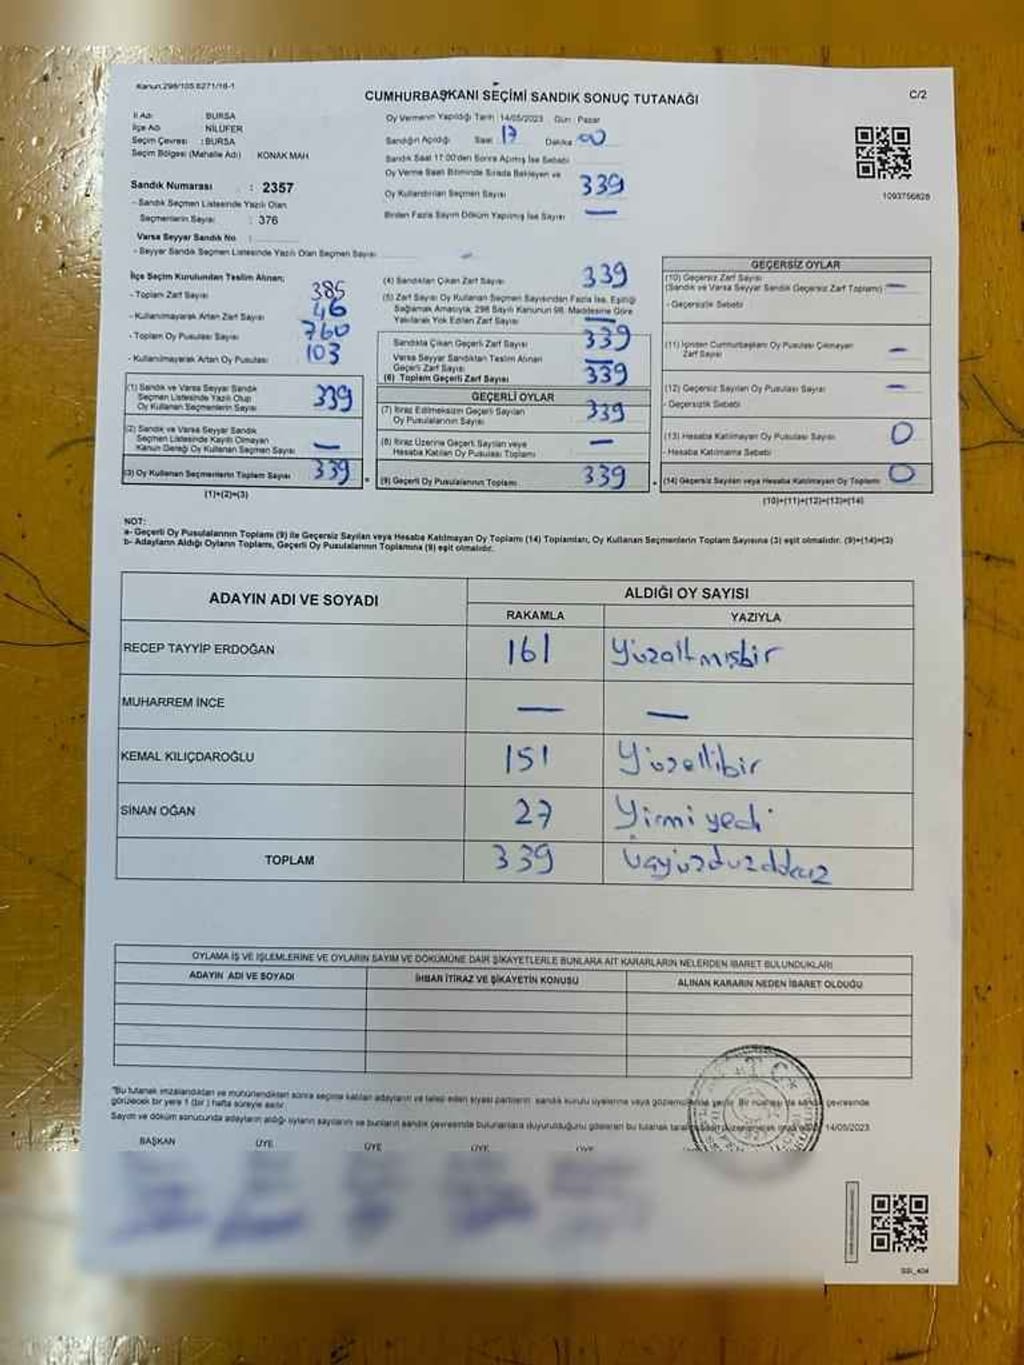 Kanun:298/105.6271/16-1
CUMHURBAŞKANI SEÇİMİ SANDIK SONUÇ TUTANAĞI
C/2
İl Adı : BURSA
İlçe Adı : NİLÜFER
Seçim Çevresi : BURSA
Seçim Bölgesi (Mahalle Adı) KONAK MAH
Sandık Numarası : 2357
- Sandık Seçmen Listesinde Yazılı Olan
Seçmenlerin Sayısı : 376
Varsa Seyyar Sandık No :
- Seyyar Sandık Seçmen Listesinde Yazılı Olan Seçmen Sayısı
Oy Vermenin Yapıldığı Tarih 14/05/2023 Gün : Pazar
Sandığın Açıldığı Saat 17 Dakika 00
Sandık Saat 17:00'den Sonra Açılmış İse Sebebi
Oy Verme Saati Bitiminde Sırada Bekleyen ve
Oy Kullandırılan Seçmen Sayısı 339
Birden Fazla Sayım Döküm Yapılmış İse Sayısı —
1093756828
İlçe Seçim Kurulundan Teslim Alınan;
- Toplam Zarf Sayısı 385
- Kullanılmayarak Artan Zarf Sayısı 46
- Toplam Oy Pusulası Sayısı 760
- Kullanılmayarak Artan Oy Pusulası 103
(1) Sandık ve Varsa Seyyar Sandık
Seçmen Listesinde Yazılı Olup
Oy Kullanan Seçmenlerin Sayısı 339
(2) Sandık ve Varsa Seyyar Sandık
Seçmen Listesinde Kayıtlı Olmayan
Kanun Gereği Oy Kullanan Seçmen Sayısı —
(3) Oy Kullanan Seçmenlerin Toplam Sayısı 339
(1)+(2)=(3)
(4) Sandıktan Çıkan Zarf Sayısı 339
(5) Zarf Sayısı Oy Kullanan Seçmen Sayısından Fazla İse, Eşitliği
Sağlamak Amacıyla, 298 Sayılı Kanunun 98. Maddesine Göre
Yakılarak Yok Edilen Zarf Sayısı —
Sandıkta Çıkan Geçerli Zarf Sayısı 339
Varsa Seyyar Sandıktan Teslim Alınan
Geçerli Zarf Sayısı —
(6) Toplam Geçerli Zarf Sayısı 339
GEÇERLİ OYLAR
(7) İtiraz Edilmeksizin Geçerli Sayılan
Oy Pusulalarının Sayısı 339
(8) İtiraz Üzerine Geçerli Sayılan veya
Hesaba Katılan Oy Pusulası Toplamı —
(9) Geçerli Oy Pusulalarının Toplamı 339
GEÇERSİZ OYLAR
(10) Geçersiz Zarf Sayısı
(Sandık ve Varsa Seyyar Sandık Geçersiz Zarf Toplamı) —
- Geçersizlik Sebebi
(11) İçinden Cumhurbaşkanı Oy Pusulası Çıkmayan
Zarf Sayısı —
(12) Geçersiz Sayılan Oy Pusulası Sayısı —
- Geçersizlik Sebebi
(13) Hesaba Katılmayan Oy Pusulası Sayısı 0
- Hesaba Katılmama Sebebi
(14) Geçersiz Sayılan veya Hesaba Katılmayan Oy Toplamı 0
(10)+(11)+(12)+(13)=(14)
NOT:
a- Geçerli Oy Pusulalarının Toplamı (9) ile Geçersiz Sayılan veya Hesaba Katılmayan Oy Toplamı (14) Toplamları, Oy Kullanan Seçmenlerin Toplam Sayısına (3) eşit olmalıdır. (9)+(14)=(3)
b- Adayların Aldığı Oyların Toplamı, Geçerli Oy Pusulalarının Toplamına (9) eşit olmalıdır.
ADAYIN ADI VE SOYADI ALDIĞI OY SAYISI
RAKAMLA YAZIYLA
RECEP TAYYİP ERDOĞAN 161 Yüzaltmışbir
MUHARREM İNCE — —
KEMAL KILIÇDAROĞLU 151 Yüzellibir
SİNAN OĞAN 27 Yirmiyedi
TOPLAM 339
OYLAMA İŞ VE İŞLEMLERİNE VE OYLARIN SAYIM VE DÖKÜMÜNE DAİR ŞİKAYETLERLE BUNLARA AİT KARARLARIN NELERDEN İBARET BULUNDUKLARI
ADAYIN ADI VE SOYADI İHBAR İTİRAZ VE ŞİKAYETİN KONUSU ALINAN KARARIN NEDEN İBARET OLDUĞU
"Bu tutanak imzalandıktan ve mühürlendikten sonra seçime katılan adayların ve talep eden siyasi partilerin sandık kurulu üyelerine veya gözlemcilerine verilir. Bir nüshası da sandık çevresinde
görülecek bir yere 1 (bir) hafta süreyle asılır.
Sayım ve döküm sonucunda adayların aldığı oyların sayılarını ve bunların sandık çevresinde bulunanlara duyurulduğunu gösteren bu tutanak 14/05/2023
BAŞKAN ÜYE ÜYE ÜYE ÜYE
T.C.